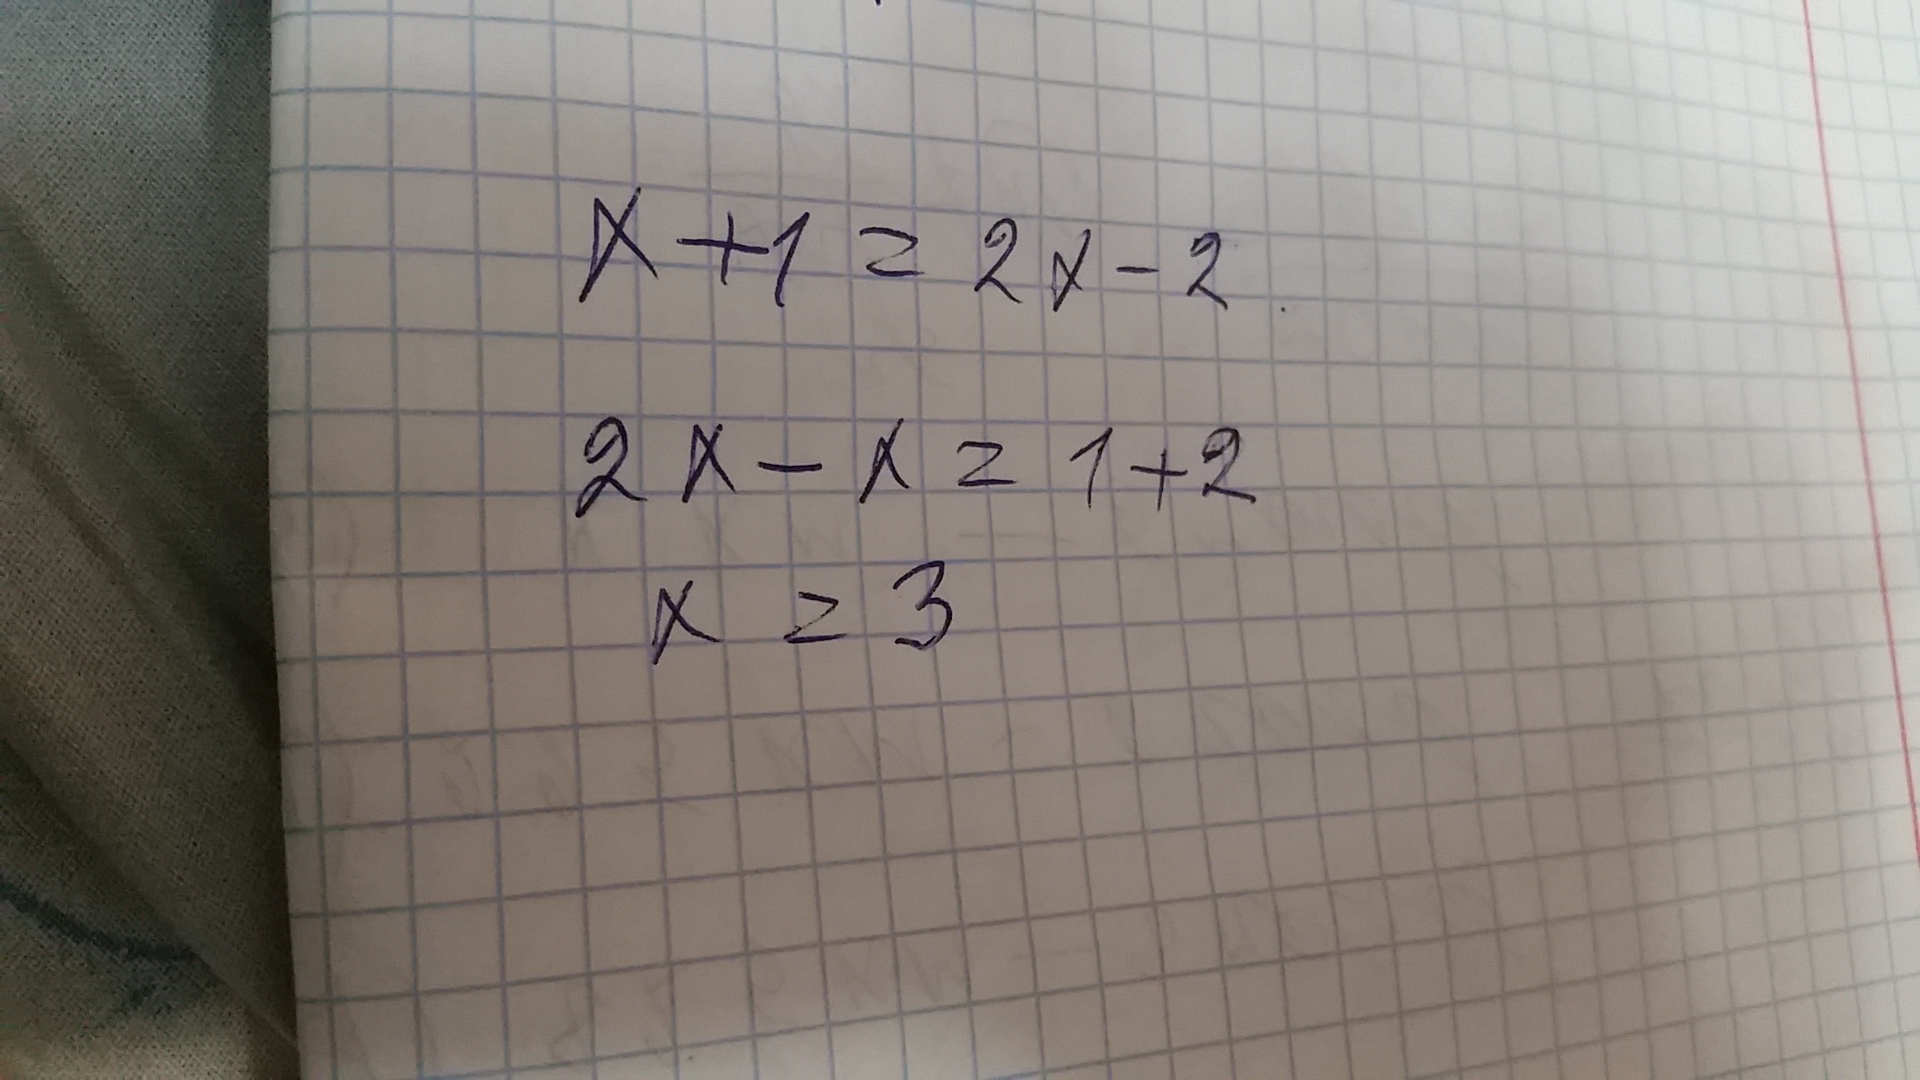 x+1=2x-2
2x-x=1+2
x=3